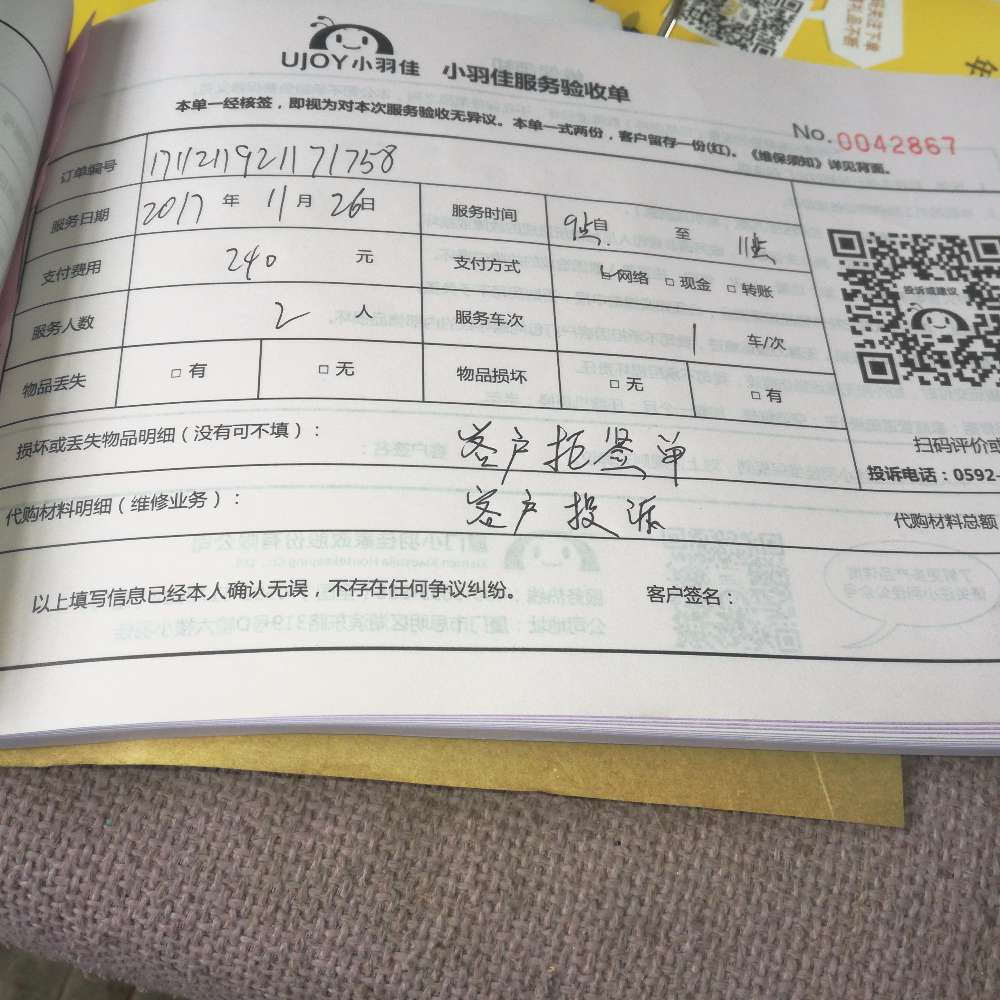 UJOY小羽佳 小羽佳服务验收单
本单一经核签，即视为对本次服务验收无异议。本单一式两份，客户留存一份(红)。《维保须知》详见背面。
No.0042867
订单编号 1711211921171758
服务日期 2017 年 11 月 26 日 服务时间 9点 自 至 11点
支付费用 240 元 支付方式 网络 □ 现金 □ 转账
服务人数 2 人 服务车次 1 车/次
物品丢失 □ 有 □ 无 物品损坏 □ 无 □ 有
投诉或建议
损坏或丢失物品明细（没有可不填）： 客户拒签单
扫码评价或
投诉电话：0592-
代购材料明细（维修业务）： 客户投诉
代购材料总额
以上填写信息已经本人确认无误，不存在任何争议纠纷。 客户签名：